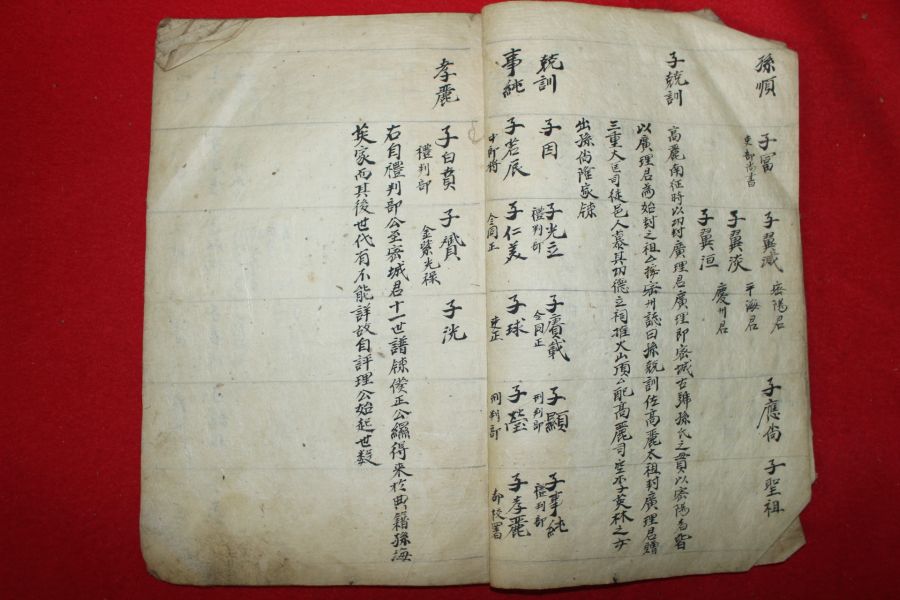 孫順 子富 吏部尚書 子翼減 密陽君 子應尚 子聖祖
子翼淡 平海君
子翼洹 慶州君
子兢訓 高麗南征時以功封廣理君廣理即密城古號孫氏之貫以密陽為
以廣理君為始封之祖今按密州誌曰孫兢訓佐高麗太祖封廣理君贈
三重大匡司徒邑人慕其功德立祠推火山頂以配高麗司空李英林之
出孫尚隆家錄
兢訓 子囙 子光立 禮判部 子賡載 仝同正 子顯 刑判部 子事純 禮判部
事純 子若辰 中郎將 子仁美 仝同正 子球 吏正 子瑩 刑判部 子孝麗 部校書
孝麗 子白賁 禮判部 子贇 金紫光祿 子洸
右自禮判部公至密城君十一世譜錄俊正公編得來於典籍孫海
家而其後世代有不能詳故自評理公始起世数